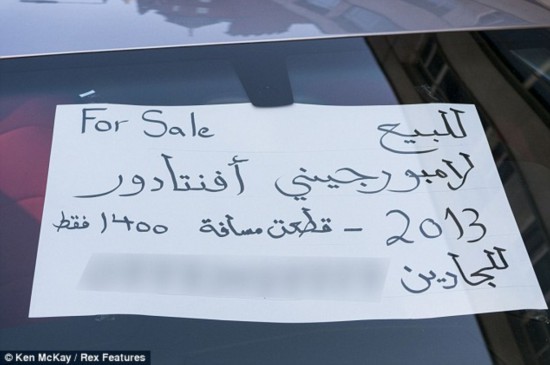 For Sale للبيع
لامبورجيني أفنتادور
2013 - قطعت مسافة 1400 فقط
للجادين
© Ken McKay / Rex Features